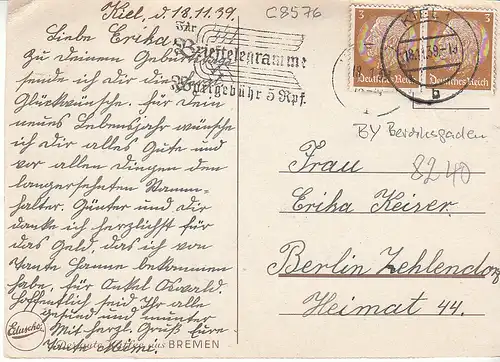 Kiel, d. 18.11.39.
C8576
Liebe Erika
Zu deinem Geburtstage
sende ich dir die
Glückwünsche. Für dein
neues Lebensjahr wünsche
ich dir alles Gute und
vor allen Dingen den
langersehnten Stamm-
halter. Günter und dir
danke ich herzlichst für
das Geld, das ich von
Tante Hanne bekommen
habe, für Onkel Oswald.
Hoffentlich seid Ihr alle
gesund und munter
Mit herzl. Gruß Eure
Tante
Für
Brieftelegramme
Vollgebühr 5 Rpf.
3
3
Deutsches Reich
Deutsches Reich
KIEL
18.11.39
b
BY Berchtesgaden
8240
Frau
Erika Keiser
Berlin Zehlendorf
Heimat 44.
Eduscho
BREMEN